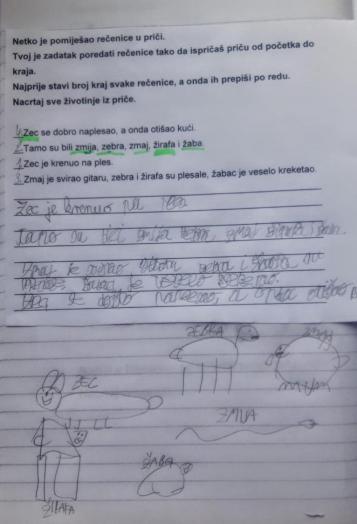 Netko je pomiješao rečenice u priči.
Tvoj je zadatak poredati rečenice tako da ispričaš priču od početka do
kraja.
Najprije stavi broj kraj svake rečenice, a onda ih prepiši po redu.
Nacrtaj sve životinje iz priče.
4 Zec se dobro naplesao, a onda otišao kući.
2 Tamo su bili zmija, zebra, zmaj, žirafa i žaba.
1 Zec je krenuo na ples.
3 Zmaj je svirao gitaru, zebra i žirafa su plesale, žabac je veselo kreketao.
Zec je krenuo na
Tamo su bili zmija zebra, zmaj žirafa i
Zmaj je svirao zebra i žirafa su
je veselo
Zec se dobro a onda otišao
ZEBRA
ZMAJ
ZEC
ZMIJA
ŽABA
ŽIRAFA